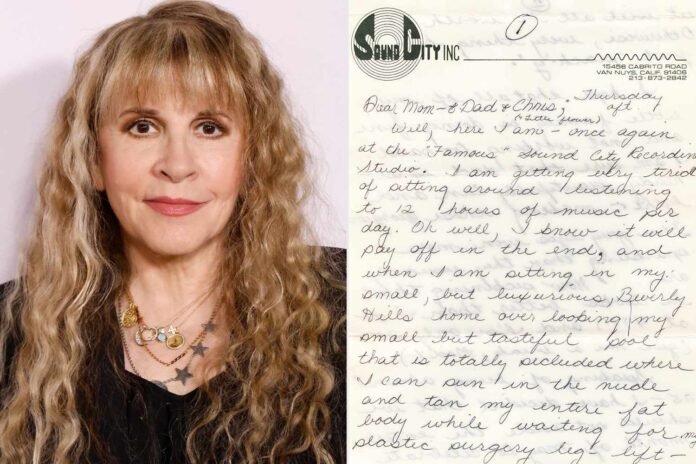 SOUND CITY INC
1
15456 CABRITO ROAD
VAN NUYS, CALIF. 91406
213-873-2842
Thursday
aft
Dear Mom - & Dad & Chris,
(& Little flower)
Well, here I am - once again
at the "Famous" Sound City Recording
Studio. I am getting very tired
of sitting around listening
to 12 hours of music per
day. Oh well, I know it will
pay off in the end, and
when I am sitting in my
small, but luxurious, Beverly
Hills home over looking my
small but tasteful pool
that is totally secluded where
I can sun in the nude
and tan my entire fat
body while waiting for my
plastic surgery leg-lift -